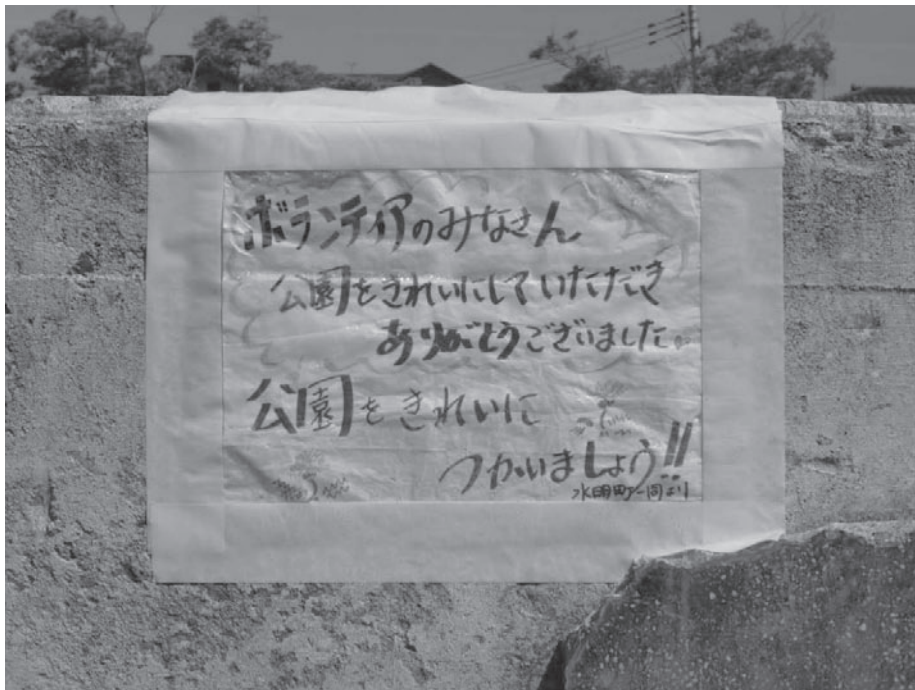 ボランティアのみなさん
公園をきれいにしていただき
ありがとうございました。
公園をきれいに
つかいましょう!!
水明町一同より